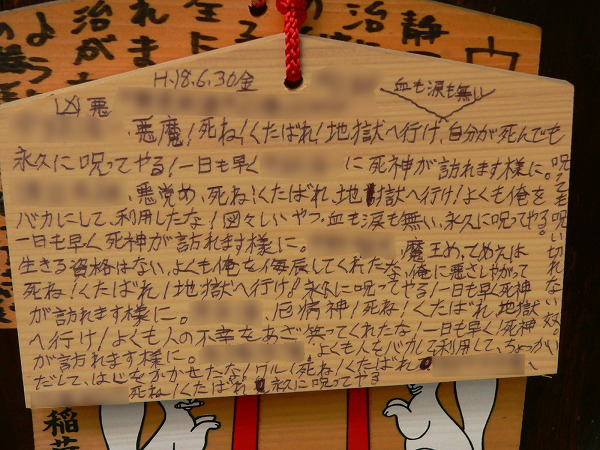 静
治
H.18.6.30金
血も涙も無い
凶悪
、悪魔!死ね!くたばれ!地獄へ行け、自分が死んでも
永久に呪ってやる!一日も早く に死神が訪れます様に。
、悪党め、死ね!くたばれ、地獄へ行け!よくも俺を
バカにして、利用したな!図々しいやつ。血も涙も無い、永久に呪ってやる。
一日も早く死神が訪れます様に。 、魔王め、てめえは
生きる資格はない、よくも俺を侮辱してくれたな、俺に悪さしやがって
死ね!くたばれ!地獄へ行け!永久に呪ってやる!一日も早く死神
が訪れます様に。 、厄病神!死ね!くたばれ、地獄
へ行け!よくも人の不幸をあざ笑ってくれたな!一日も早く死神
が訪れます様に。 、よくも人をバカにして利用して、ちょっかい
だして、はじをかかせたな!ワル!死ね!くたばれ
死ね!くたばれ 永久に呪ってやる
呪っても呪い切れない奴。
稲荷